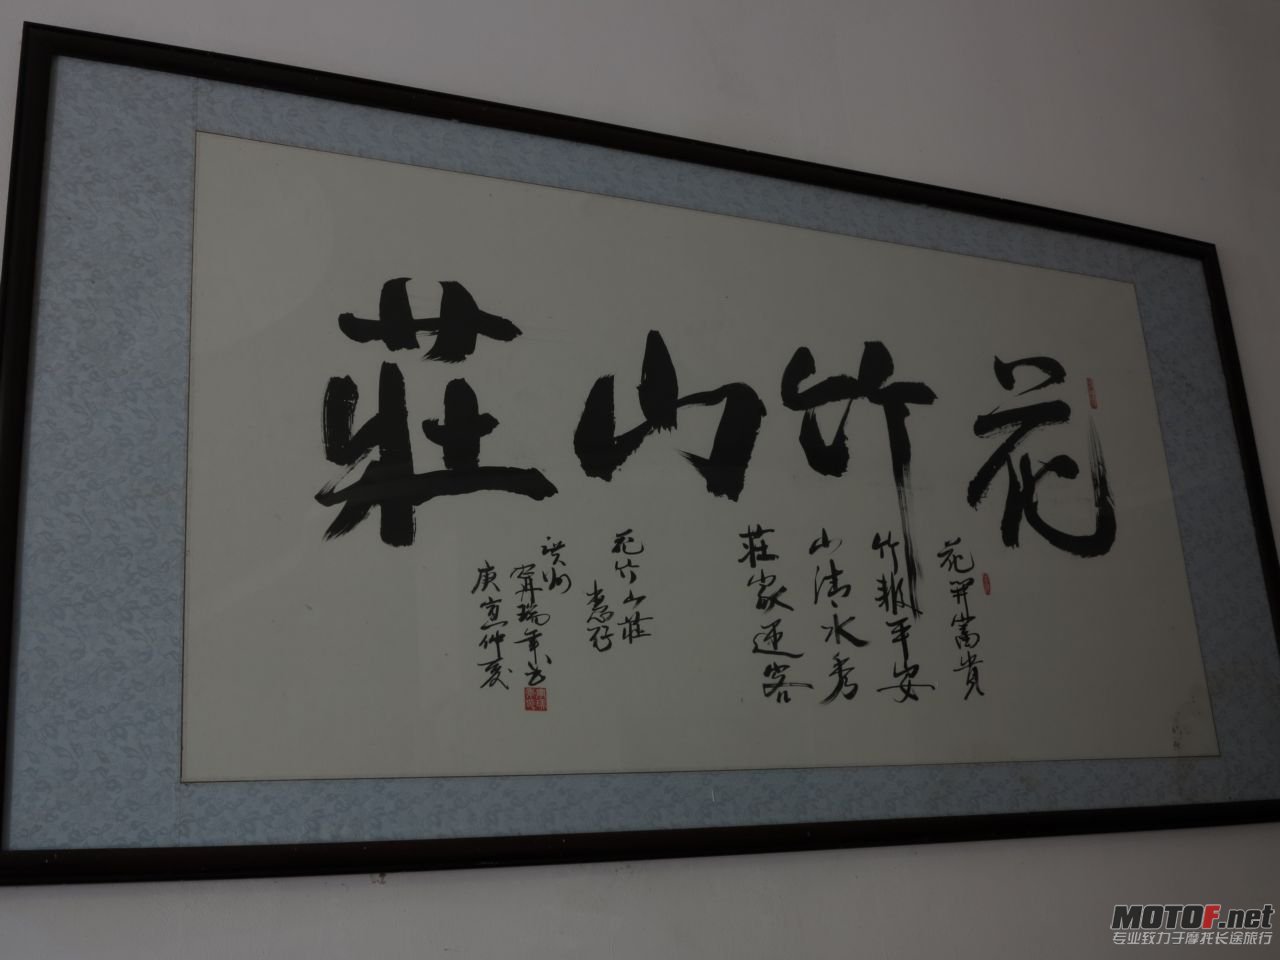 花竹山莊
花開富貴
竹報平安
山清水秀
莊家迎客
花竹山莊
庚寅仲夏
MOTOF.net
专业致力于摩托长途旅行